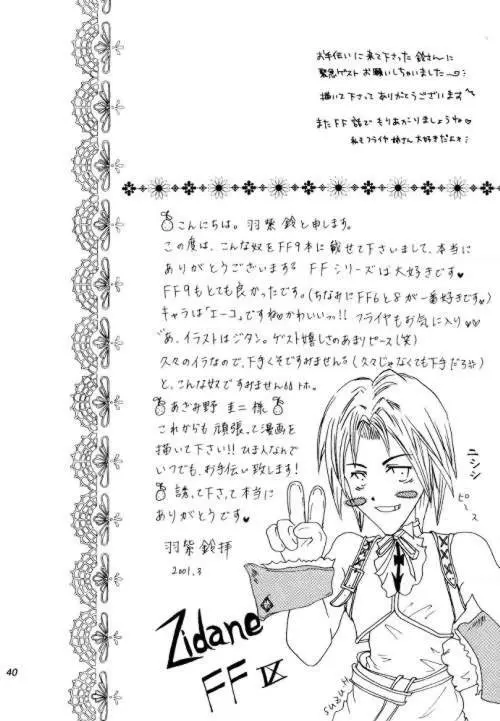 お手伝いに来て下さった鈴さんに
緊急ゲストお願いしちゃいました
描いて下さってありがとうございます
またFF話でもりあがりましょうね♡
私もフライヤ姉さん大好きだよォ
こんにちは。羽柴鈴と申します。
この度は、こんな奴をFF9本に載せて下さいまして、本当に
ありがとうございます FFシリーズは大好きです♥
FF9もとても良かったです。(ちなみにFF6と8が一番好きです♥)
キャラは「エーコ」ですね♥かわいいっ!! フライヤもお気に入り♥
あ、イラストはジタン。ゲスト嬉しさのあまりピース(笑)
久々のイラなので、下手くそですみません(久々じゃなくても下手だろ)
と、こんな奴ですみません トホ。
あざみ野 圭二 様
これからも頑張って漫画を
描いて下さい!! ひま人なんで
いつでも、お手伝い致します!
誘って下さって本当に
ありがとうです♥
羽柴鈴拝
2001.3
ニシシ
ピース
Zidane
FF IX
suzu
40